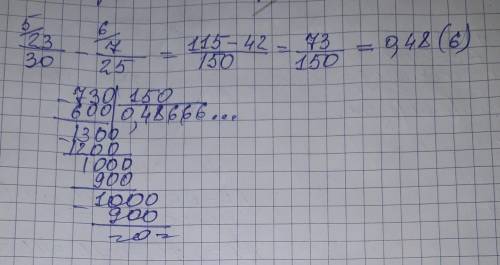 5 6
23/30 - 7/25 = 115-42/150 = 73/150 = 0,48(6)
-730 | 150
600 | 0,48666...
-1300
1200
1000
900
-1000
900